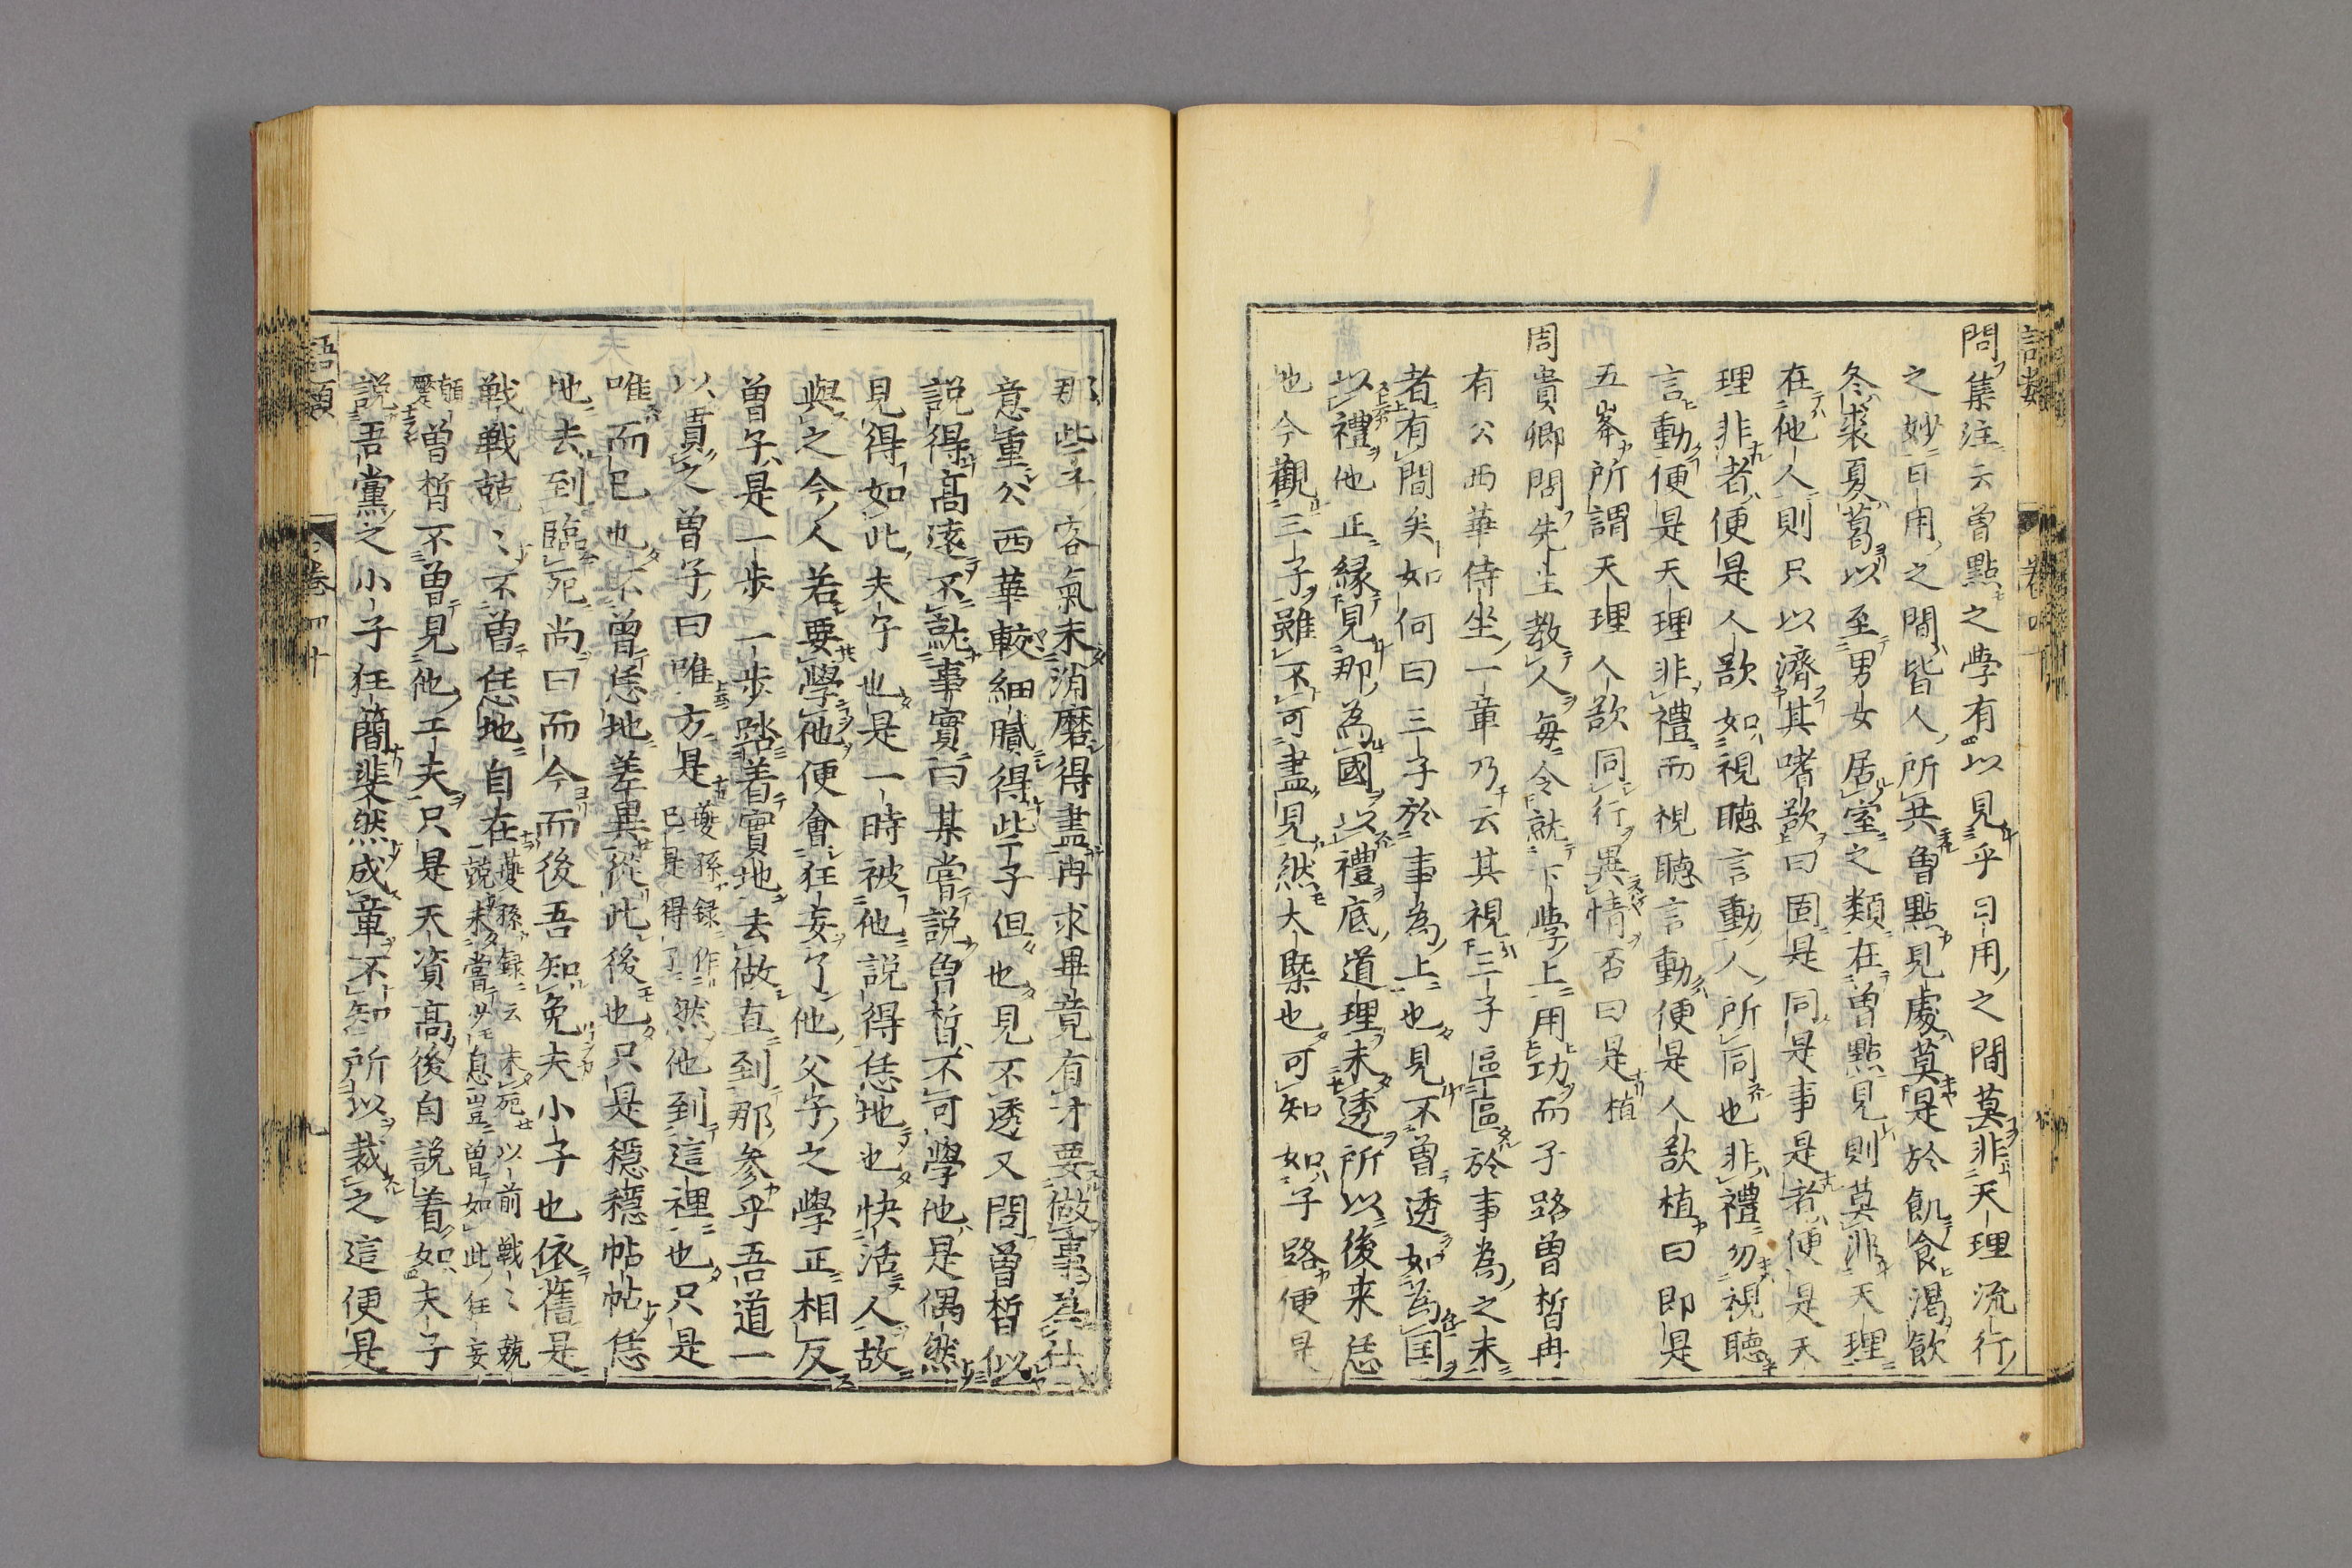 問集注云曽點之學有以見乎日用之間莫非天理流行
之妙日用之間皆人所共曽點見處莫是於飢食渇飲
冬裘夏葛以至男女居室之類在曽點見則莫非天理
在他人則只以濟其嗜欲曰固是同是事是者便是天
理非者便是人欲如視聴言動人所同也非禮勿視聴
言動便是天理非禮而視聴言動便是人欲植曰即是
五峯所謂天理人欲同行異情否曰是植
周貴卿問先生教人毎令就下學上用功而子路曽晳冉
有公西華侍坐一章乃云其視三子區區於事為之末
者有間矣如何曰三子於事為上也見不曽透如為国
以禮他正縁見那為國以禮底道理未透所以後来恁
也今觀三子雖不可盡見然大槩也可知如子路便是
那些子客氣未消磨得盡冉求畢竟有才要做事為仕
意重公西華較細膩得些子但也見不透又問曽晳似
説得髙逺不就事實曰某嘗説曽晳不可學他是偶然
見得如此夫子也是一時被他説得恁地也快活人故
與之今人若要學他便會狂妄了他父子之學正相反
曽子是一歩一歩踏着實地去做直到那参乎吾道一
以貫之曽子曰唯方是䕫孫録作已是得了然他到這裡也只是
唯而已也不曽恁地差異從此後也只是穏穏帖帖恁
地去到臨死尚曰而今而後吾知免夫小子也依舊是
戦戦兢〻不曽恁地自在䕫孫録云未死以前戦〻兢兢未嘗少息豈曽如此狂妄
顛蹷曽晳不曽見他工夫只是天資髙後自説着如夫子
説吾黨之小子狂簡斐然成章不知所以裁之這便是
語類
卷四十
九